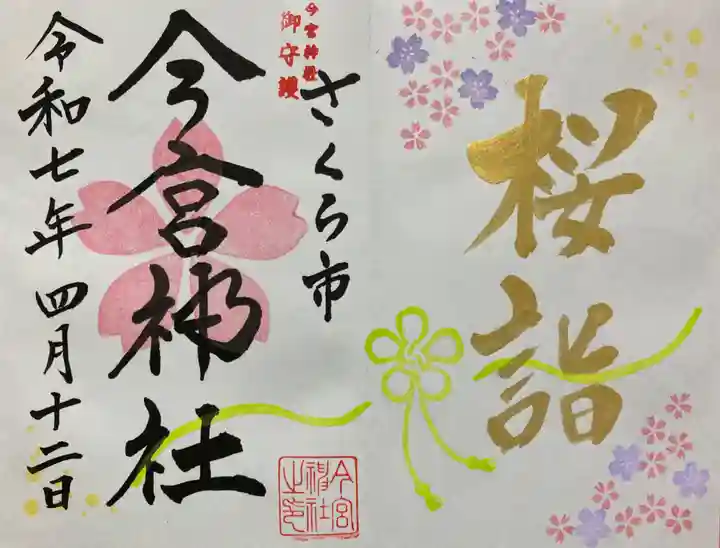 桜詣
さくら市
今宮神社
御守護
今宮神社
令和七年四月十二日
今宮神社之印